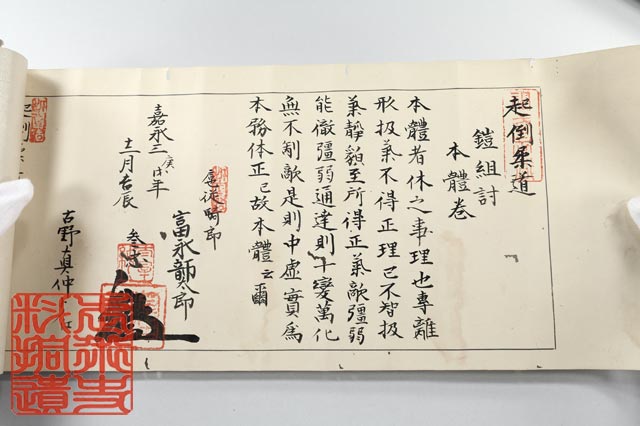 起倒柔道
鎧組討
本體卷
本體者休之事理也專離
形扱氣不得正理已不智扱
氣靜貌至所得正氣敵彊弱
能徹彊弱通達則千變萬化
無不制敵是則中虛實爲
本務体正已故本體云爾
嘉永三庚戌年
十二月吉辰
富永
古野真仲